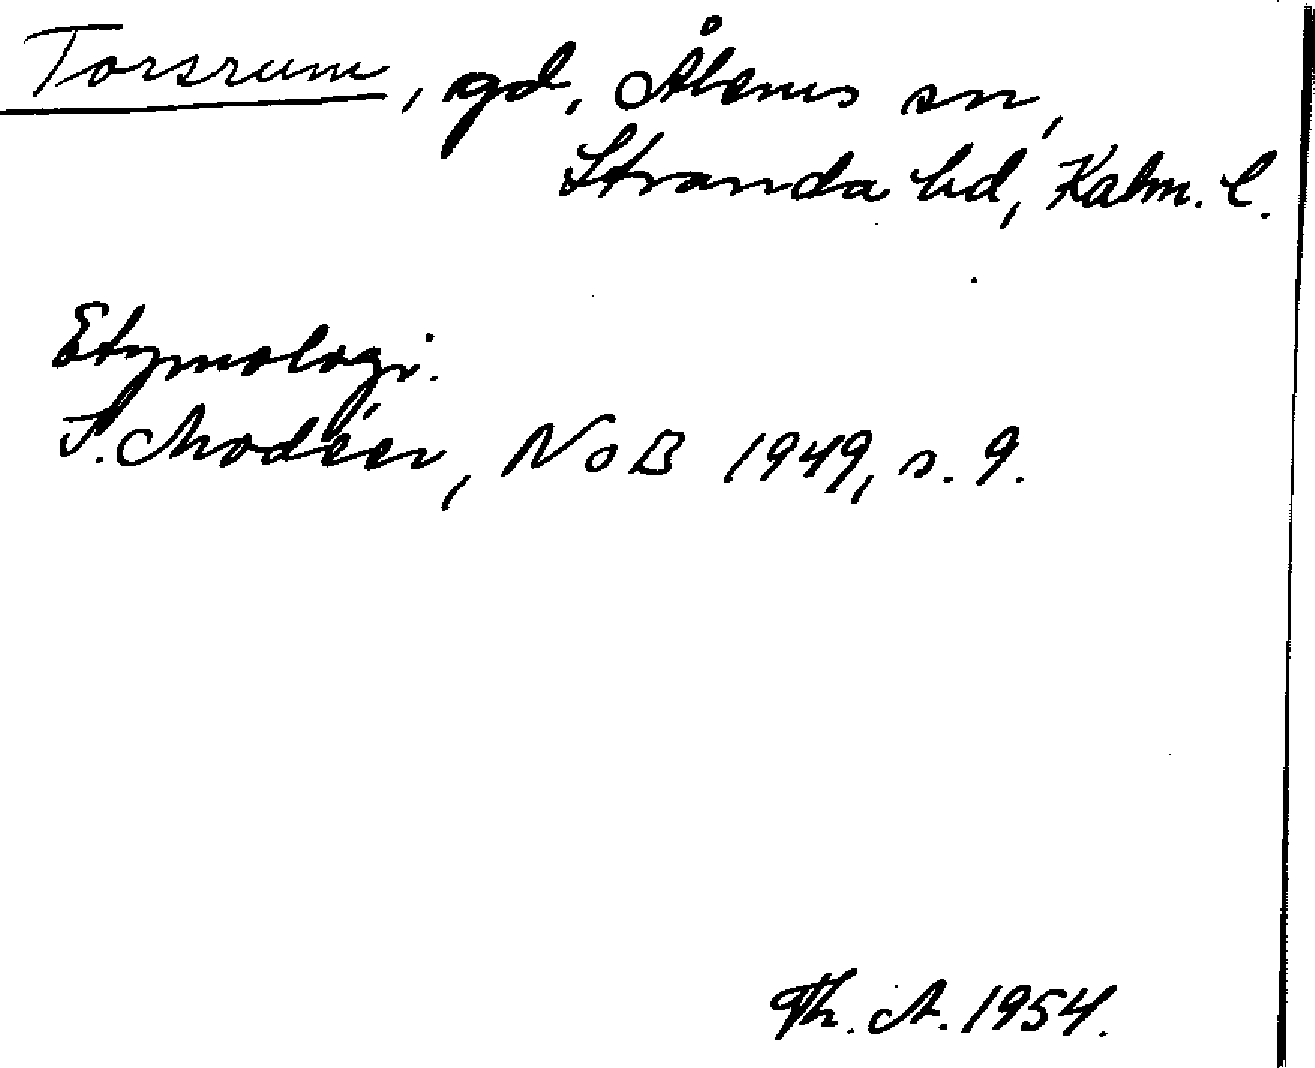 Torsrum, gd, Ålems sn,
Stranda hd, Kalm. l.
Etymologi.
I. Modéer, NoB 1949, s. 9.
Th. A. 1954.